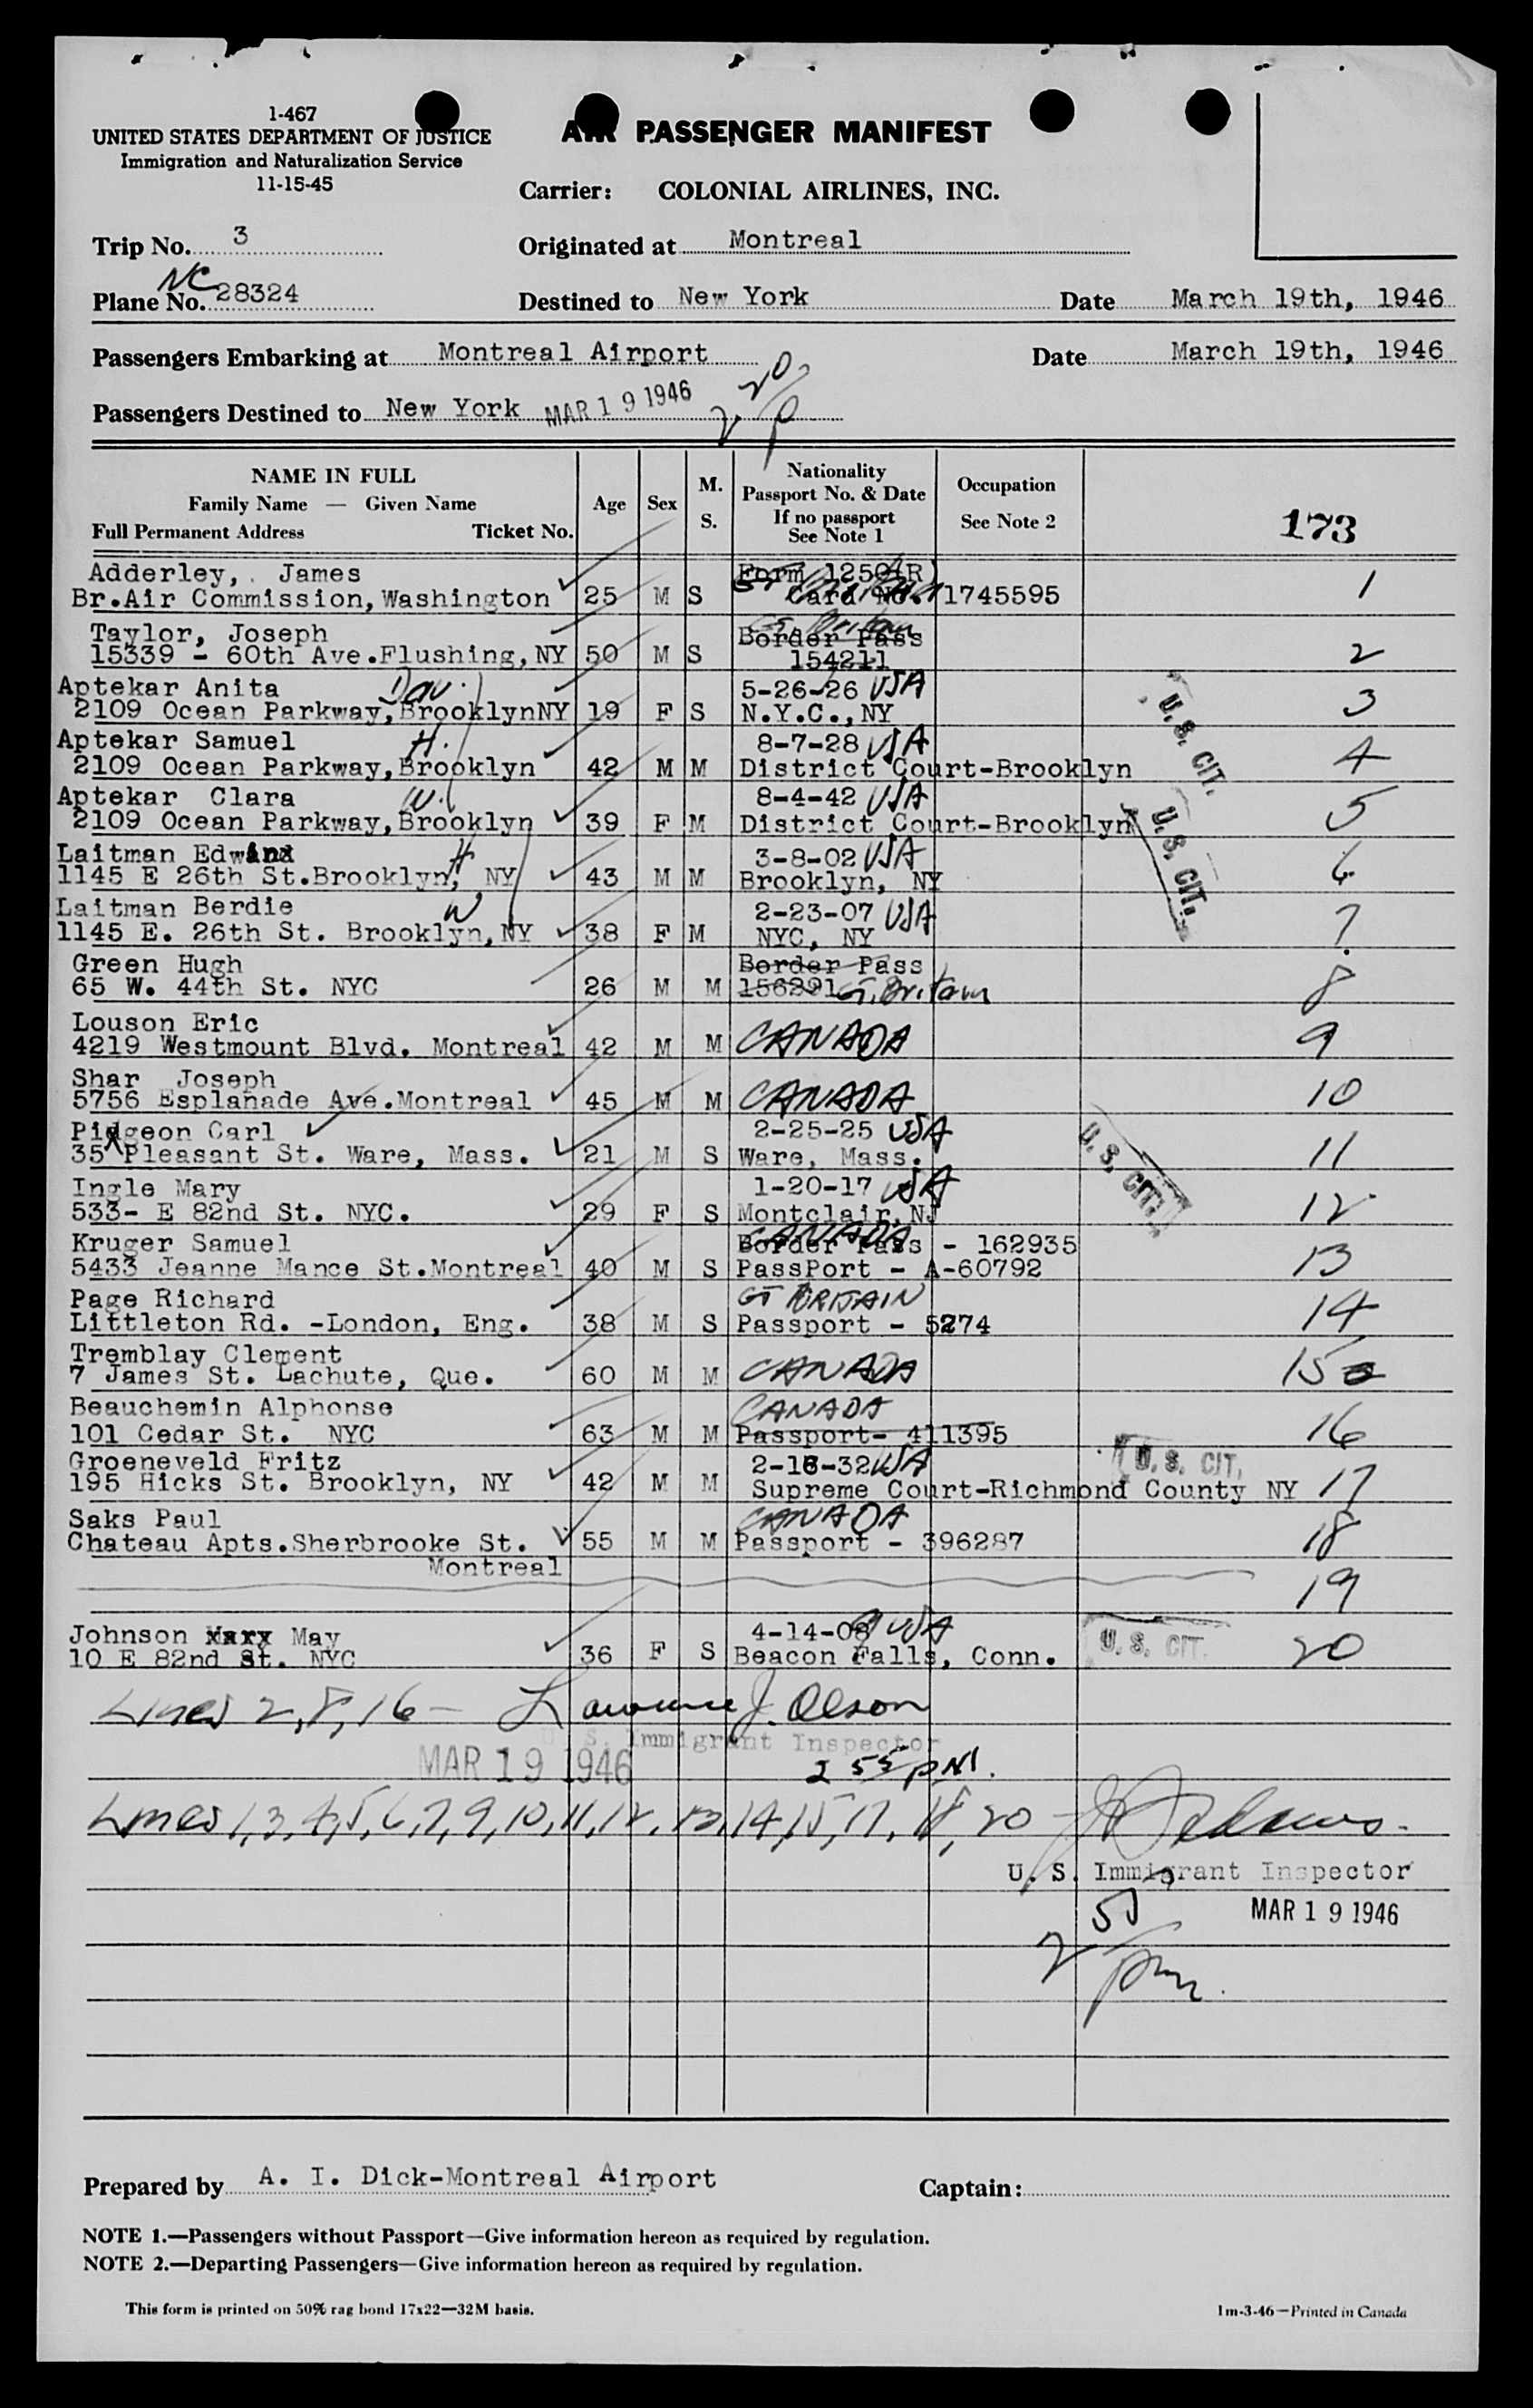 1-467
UNITED STATES DEPARTMENT OF JUSTICE
Immigration and Naturalization Service
11-15-45
AIR PASSENGER MANIFEST
Carrier: COLONIAL AIRLINES, INC.
Trip No. 3
Originated at Montreal
Plane No. NC 28324
Destined to New York
Date March 19th, 1946
Passengers Embarking at Montreal Airport
Date March 19th, 1946
Passengers Destined to New York MAR 19 1946 2 20/P
NAME IN FULL
Family Name — Given Name
Full Permanent Address Ticket No.
Age
Sex
M.
S.
Nationality
Passport No. & Date
If no passport
See Note 1
Occupation
See Note 2
173
Adderley, James Form 1250(R)
Br.Air Commission,Washington 25 M S Card No. 1745595 1
Taylor, Joseph Gt. Britain Border Pass
15339 - 60th Ave.Flushing,NY 50 M S 154211 2
Aptekar Anita Dau. 5-26-26 USA
2109 Ocean Parkway,BrooklynNY 19 F S N.Y.C.,NY 3
U. S. CIT.
Aptekar Samuel H. 8-7-28 USA
2109 Ocean Parkway,Brooklyn 42 M M District Court-Brooklyn 4
Aptekar Clara W. 8-4-42 USA
2109 Ocean Parkway,Brooklyn 39 F M District Court-Brooklyn 5
U. S. CIT.
Laitman Edwin H 3-8-02 USA
1145 E 26th St.Brooklyn, NY 43 M M Brooklyn, NY 6
Laitman Berdie W 2-23-07 USA
1145 E. 26th St. Brooklyn,NY 38 F M NYC, NY 7
Green Hugh Border Pass
65 W. 44th St. NYC 26 M M 156291 Gt. Britain 8
Louson Eric
4219 Westmount Blvd. Montreal 42 M M CANADA 9
Shar Joseph
5756 Esplanade Ave.Montreal 45 M M CANADA 10
Pidgeon Carl 2-25-25 USA
35 Pleasant St. Ware, Mass. 21 M S Ware, Mass. 11
U. S. CIT.
Ingle Mary 1-20-17 USA
533- E 82nd St. NYC. 29 F S Montclair,NJ 12
Kruger Samuel CANADA Border Pass - 162935
5433 Jeanne Mance St.Montreal 40 M S PassPort - A-60792 13
Page Richard GT BRITAIN
Littleton Rd. -London, Eng. 38 M S Passport - 5274 14
Tremblay Clement
7 James St. Lachute, Que. 60 M M CANADA 15
Beauchemin Alphonse CANADA
101 Cedar St. NYC 63 M M Passport- 411395 16
Groeneveld Fritz 2-18-32 USA U. S. CIT.
195 Hicks St. Brooklyn, NY 42 M M Supreme Court-Richmond County NY 17
Saks Paul CANADA
Chateau Apts.Sherbrooke St. 55 M M Passport - 396287 18
Montreal
19
Johnson Mary May 4-14-09 USA U. S. CIT.
10 E 82nd St. NYC 36 F S Beacon Falls, Conn. 20
Lines 2,8,16 - Lawrence J. Olson
U. S. Immigrant Inspector
MAR 19 1946 2 55 PM.
Lines 1,3,4,5,6,7,9,10,11,12,13,14,15,17,18,20
U. S. Immigrant Inspector
MAR 19 1946
2 55/pm.
Prepared by A. I. Dick-Montreal Airport
Captain:
NOTE 1.—Passengers without Passport—Give information hereon as required by regulation.
NOTE 2.—Departing Passengers—Give information hereon as required by regulation.
This form is printed on 50% rag bond 17x22—32M basis.
1m-3-46—Printed in Canada